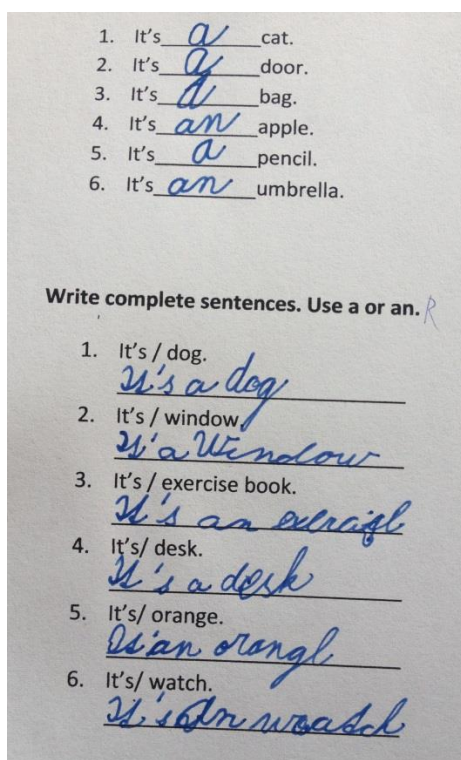 1. It's a cat.
2. It's a door.
3. It's a bag.
4. It's an apple.
5. It's a pencil.
6. It's an umbrella.
Write complete sentences. Use a or an. R
1. It's / dog.
It's a dog
2. It's / window.
It'a Window
3. It's / exercise book.
It's an
4. It's/ desk.
It's a desk
5. It's/ orange.
an orange
6. It's/ watch.
It's an